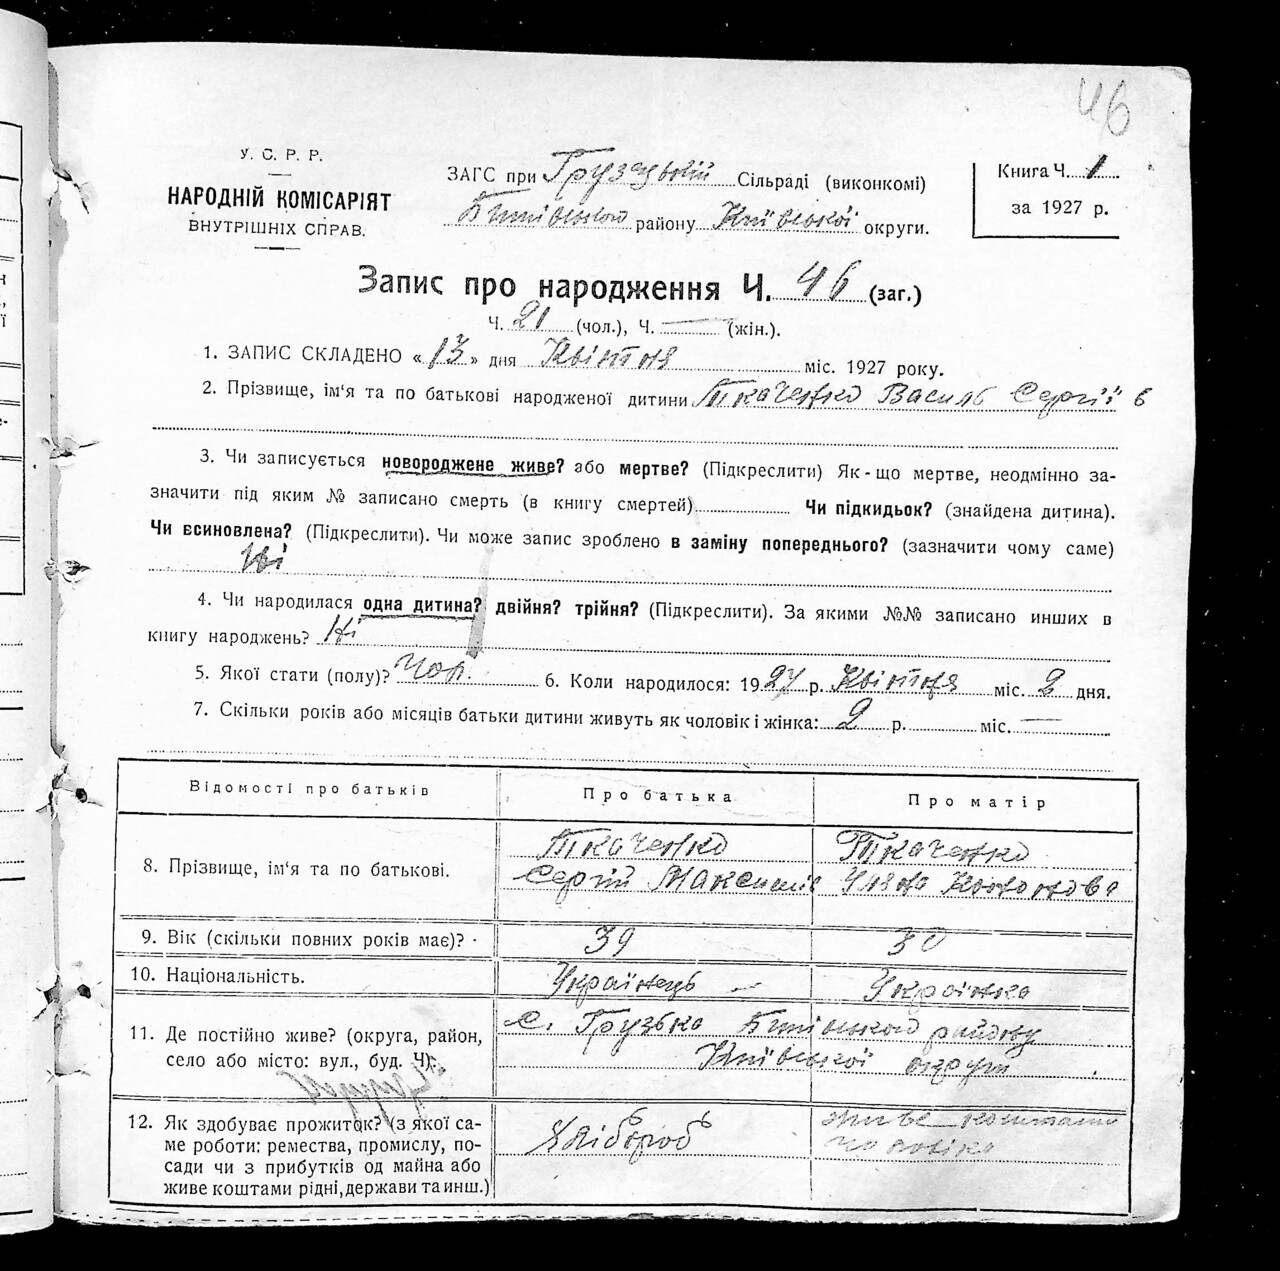 46
У. С. Р. Р.
НАРОДНІЙ КОМІСАРІЯТ
ВНУТРІШНІХ СПРАВ.
ЗАГС при Грузецькій Сільраді (виконкомі)
району Київської округи.
Книга Ч. 1
за 1927 р.
Запис про народження Ч. 46 (заг.)
Ч. 21 (чол.), Ч. — (жін.).
1. ЗАПИС СКЛАДЕНО « 13 » дня Квітня міс. 1927 року.
2. Прізвище, ім'я та по батькові народженої дитини Ткаченко Василь Сергіїв
3. Чи записується новороджене живе? або мертве? (Підкреслити) Як-що мертве, неодмінно за-
значити під яким № записано смерть (в книгу смертей) Чи підкидьок? (знайдена дитина).
Чи всиновлена? (Підкреслити). Чи може запис зроблено в заміну попереднього? (зазначити чому саме)
Ні
4. Чи народилася одна дитина? двійня? трійня? (Підкреслити). За якими №№ записано инших в
книгу народжень? Ні
5. Якої стати (полу)? Чол. 6. Коли народилося: 1927 р. Квітня міс. 2 дня.
7. Скільки років або місяців батьки дитини живуть як чоловік і жінка: 2 р. міс. —
Відомості про батьків Про батька Про матір
8. Прізвище, ім'я та по батькові.
Ткаченко
Сергій Максимів
Ткаченко
Уляна Кононова
9. Вік (скільки повних років має)? 39 30
10. Національність. Українець — Українка
11. Де постійно живе? (округа, район,
село або місто: вул., буд. Ч).
с. Грузька району
Київської округи
12. Як здобуває прожиток? (з якої са-
ме роботи: ремества, промислу, по-
сади чи з прибутків од майна або
живе коштами рідні, держави та инш.)
Хлібороб
живе коштами
чоловіка